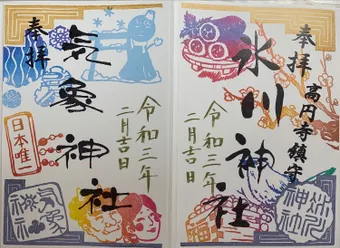 奉拝
高円寺鎮守
氷川神社
令和三年
二月吉日
氷川神社
奉拝
気象神社
令和三年
二月吉日
日本唯一
気象神社